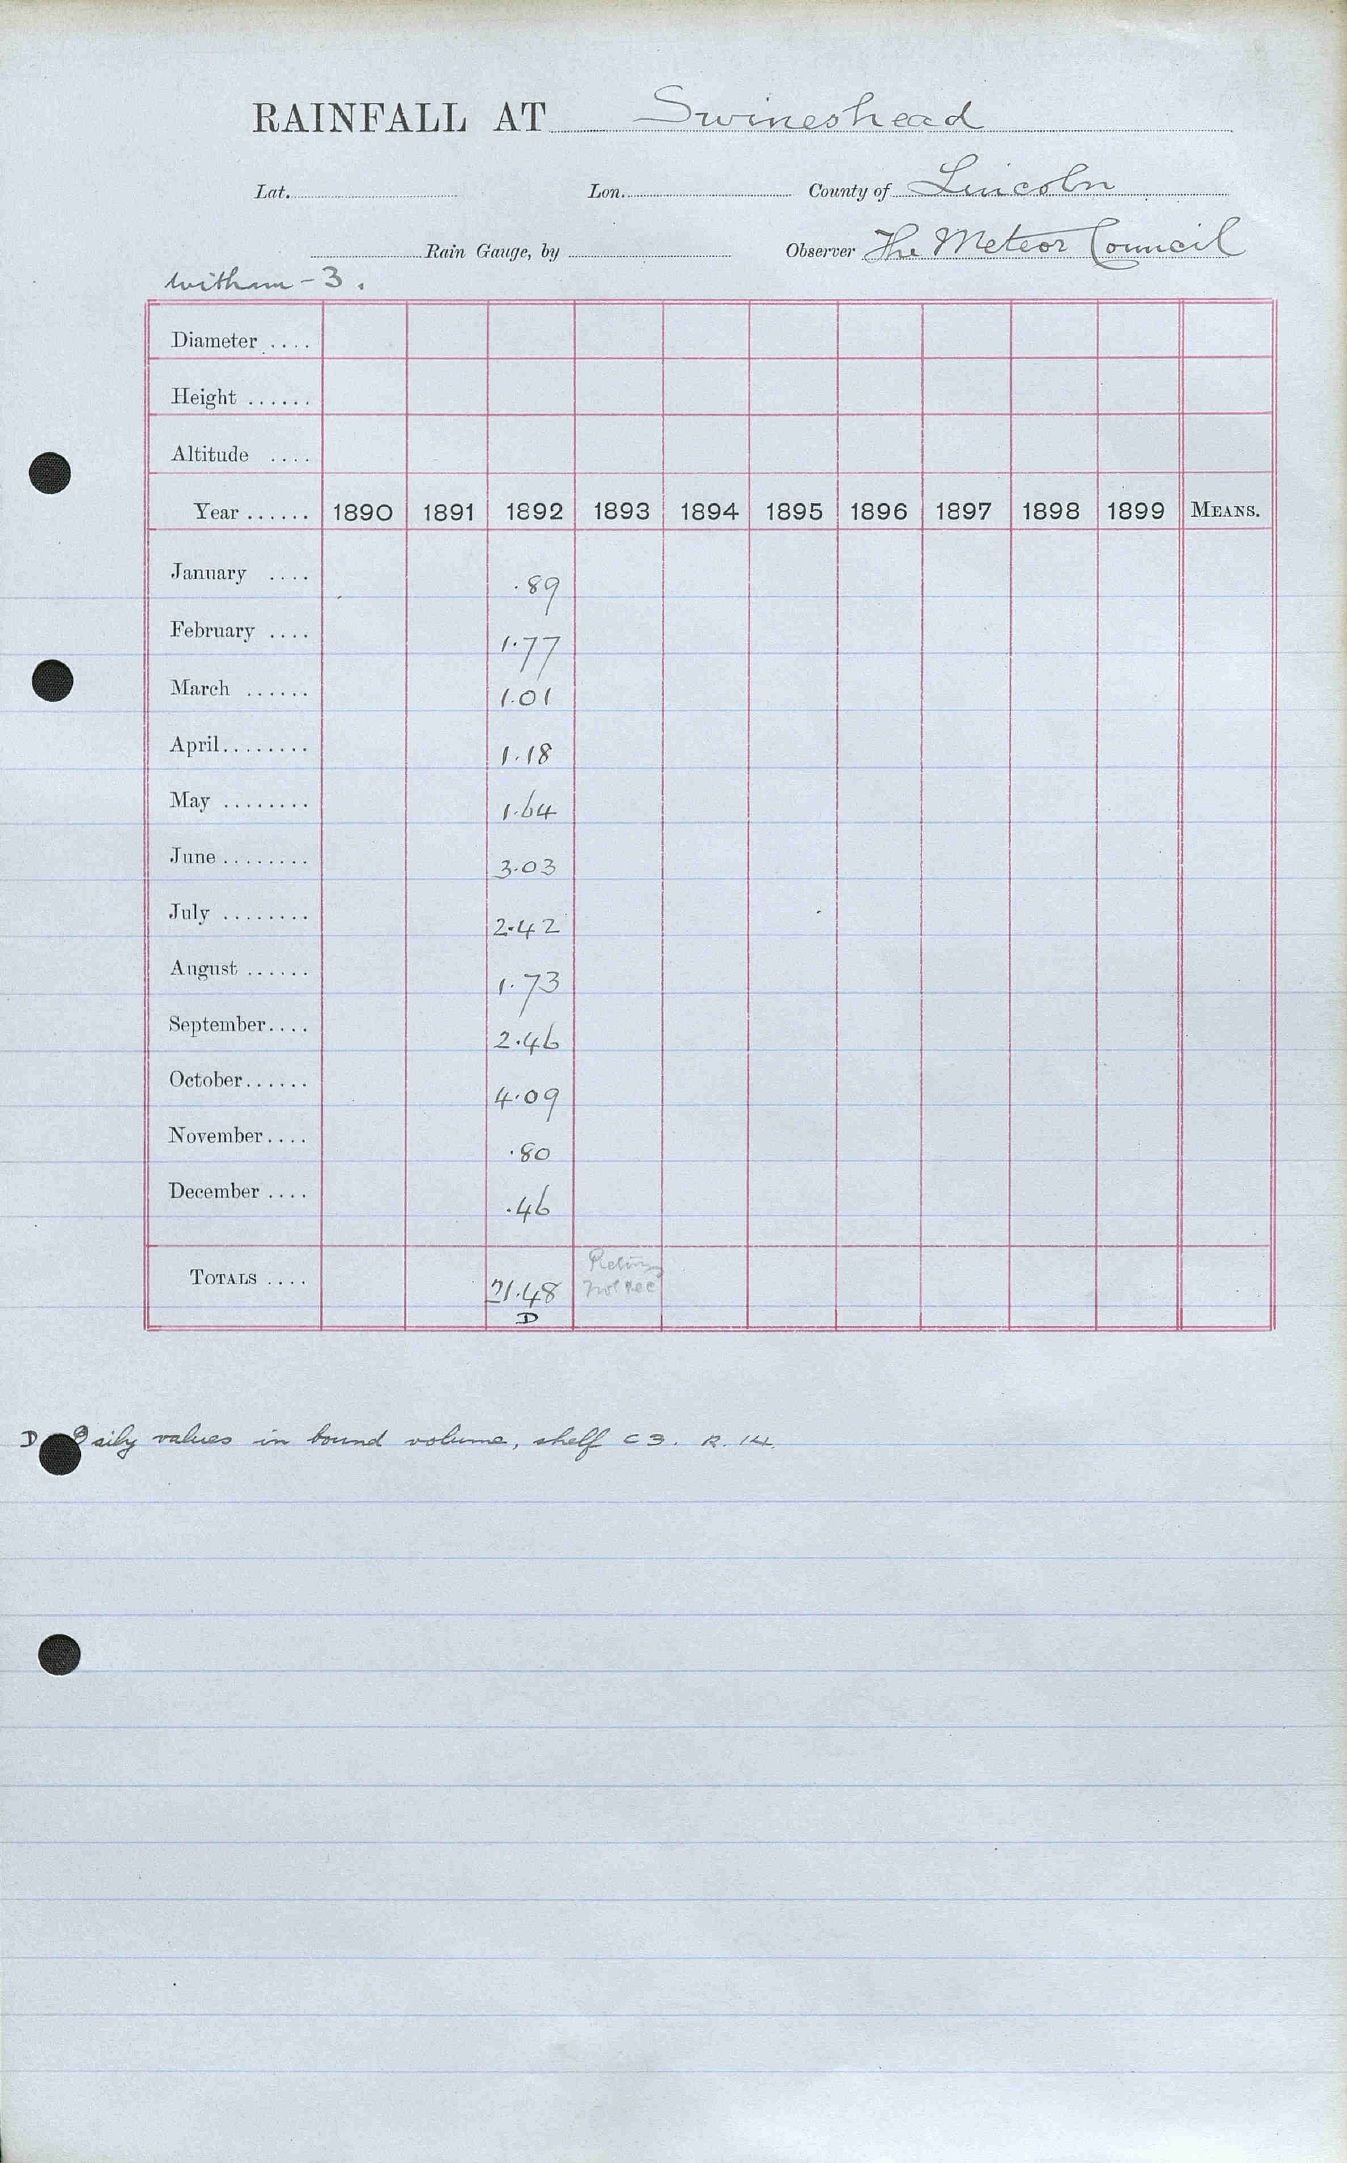 RAINFALL AT Swineshead
Lat. Lon. County of Lincoln
Rain Gauge, by Observer The Meteor Council
Witham - 3.
Diameter ....
Height ......
Altitude ....
Year ...... 1890 1891 1892 1893 1894 1895 1896 1897 1898 1899 MEANS.
January .... .89
February .... 1.77
March ...... 1.01
April........ 1.18
May ........ 1.64
June........ 3.03
July ........ 2.42
August ...... 1.73
September.... 2.46
October...... 4.09
November.... .80
December .... .46
TOTALS .... 21.48 not rec
D
D Daily values in bound volume, shelf C 3. R. 14.